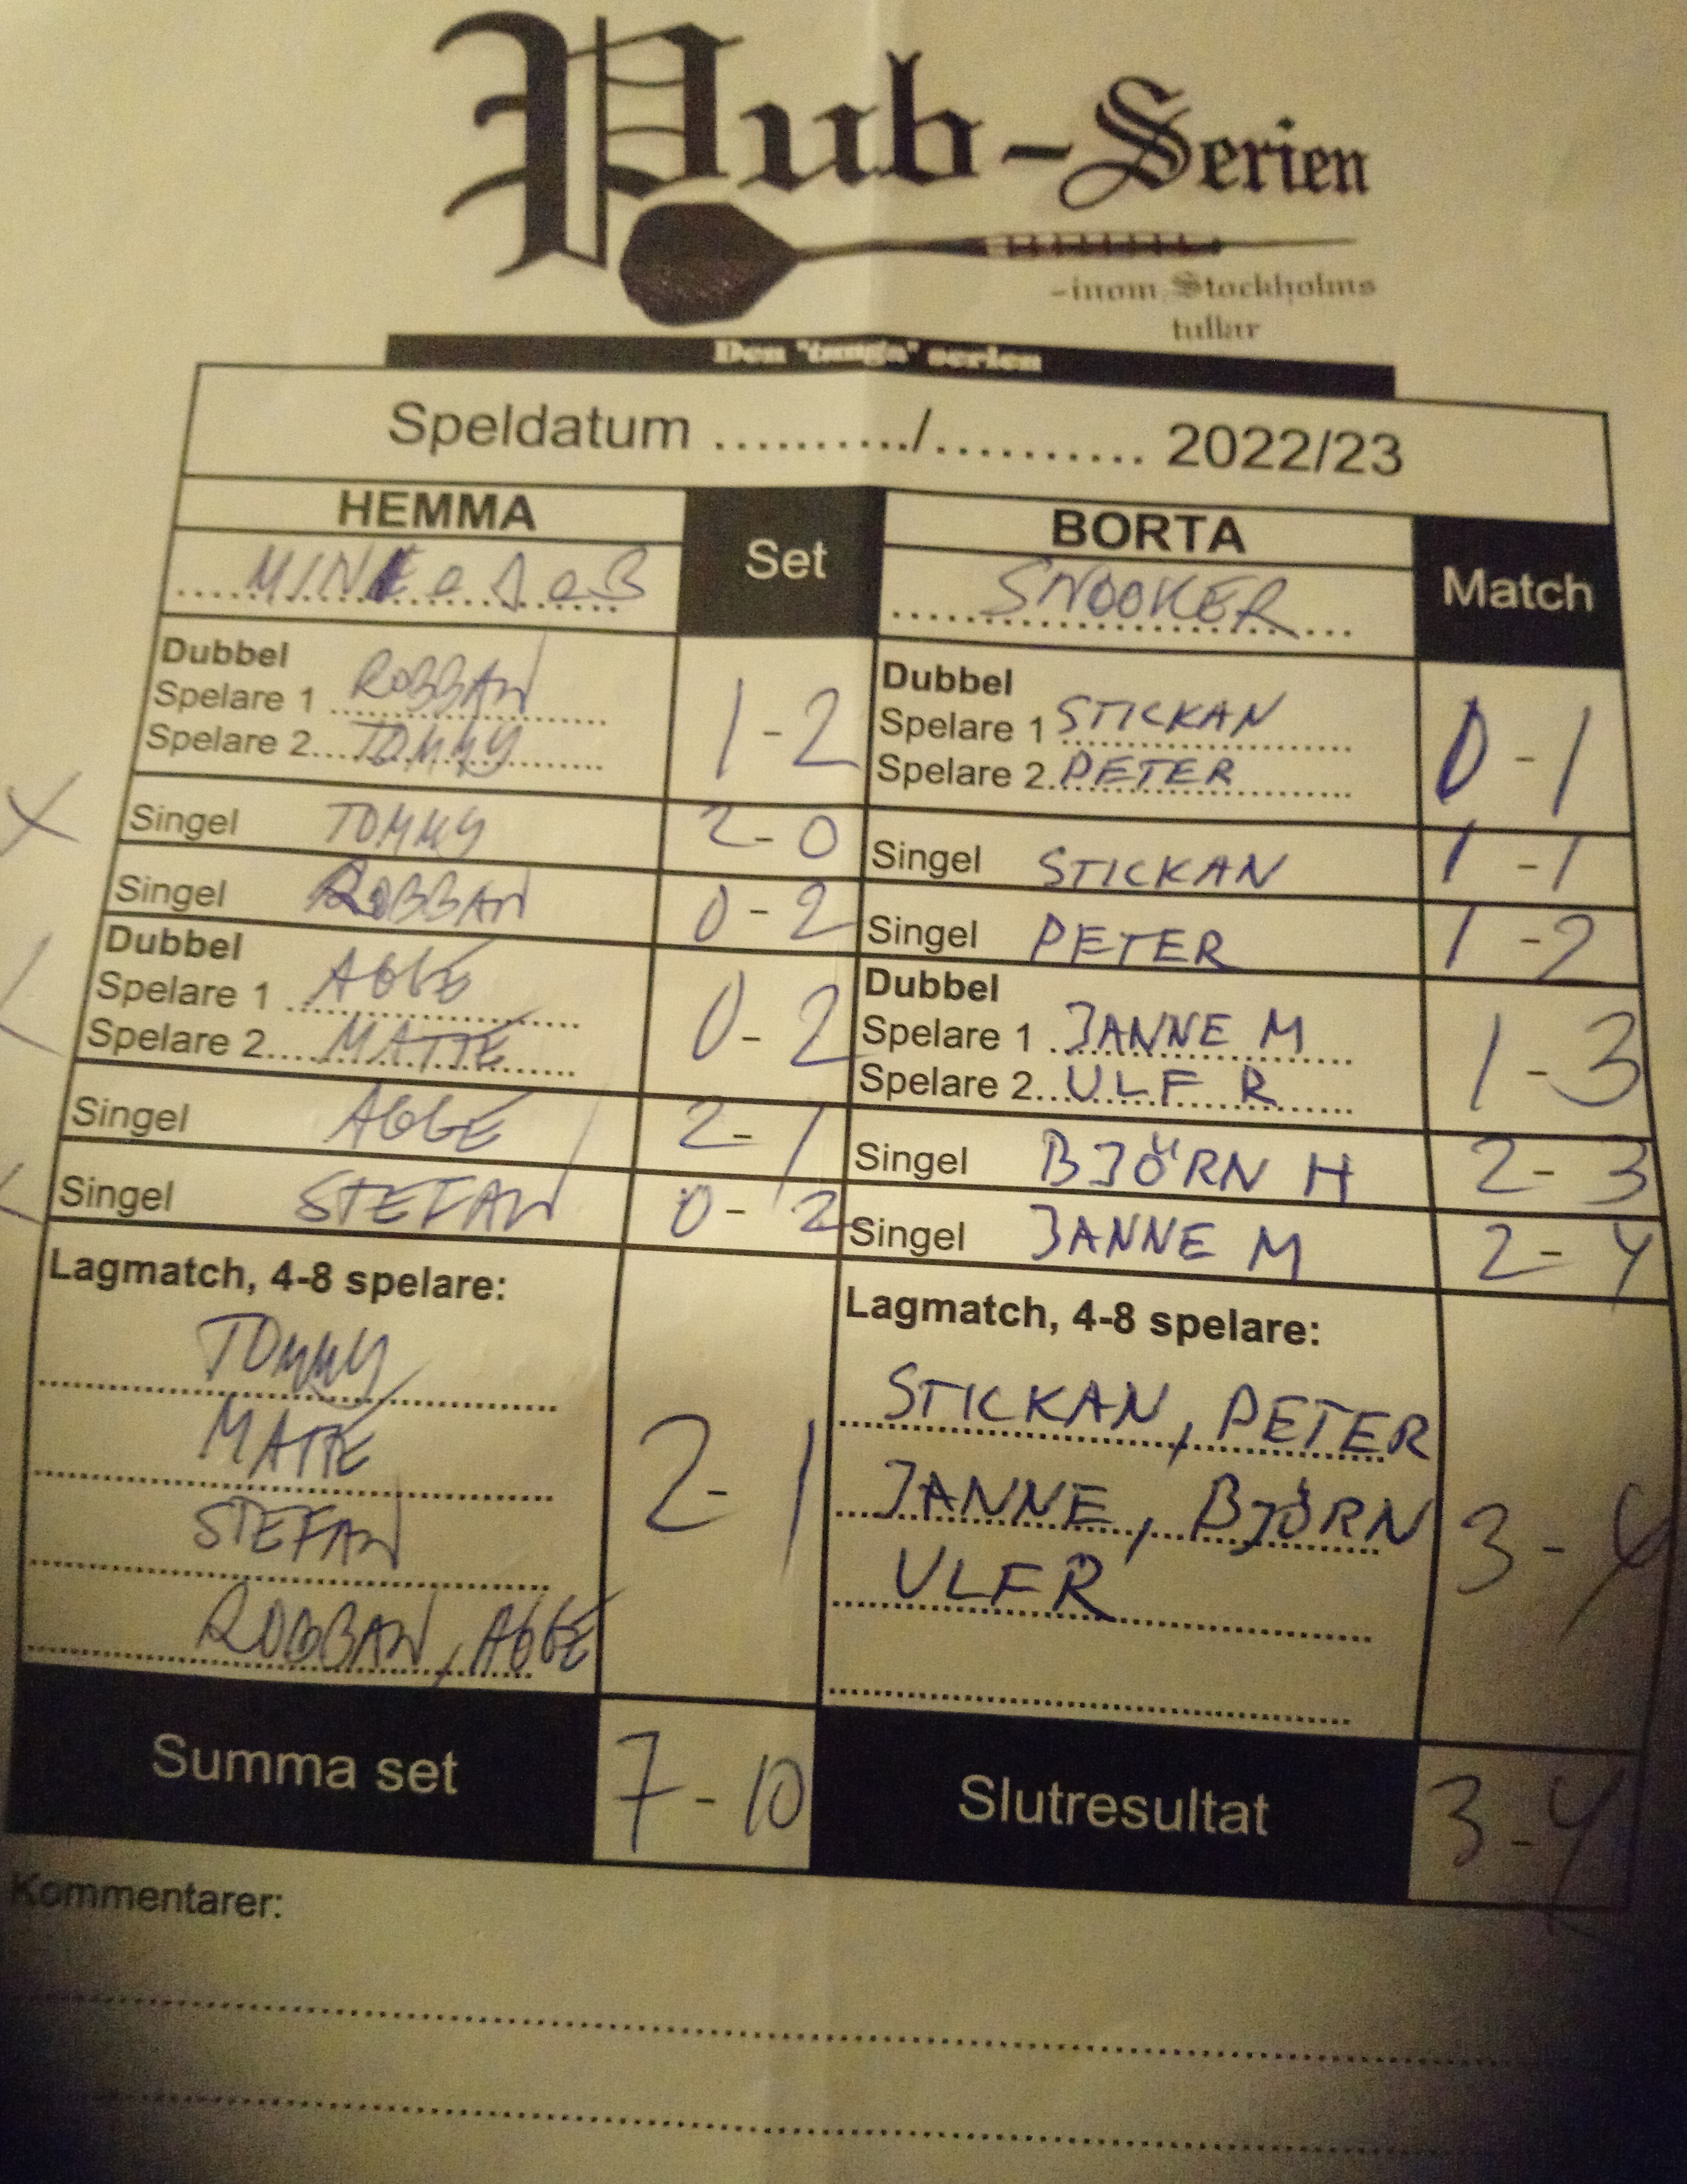 Pub-Serien
-inom Stockholms
tullar
Den "tunga" serien
Speldatum ........../.......... 2022/23
HEMMA Set BORTA Match
SNOOKER
Dubbel Dubbel
Spelare 1 ROBBAN 1-2 Spelare 1 STICKAN 0-1
Spelare 2 TOMMY Spelare 2 PETER
X Singel TOMMY 2-0 Singel STICKAN 1-1
Singel ROBBAN 0-2 Singel PETER 1-2
Dubbel Dubbel
Spelare 1 ABBE 0-2 Spelare 1 JANNE M 1-3
Spelare 2 MATTE Spelare 2 ULF R
Singel ABBE 2-1 Singel BJÖRN H 2-3
Singel STEFAN 0-2 Singel JANNE M 2-4
Lagmatch, 4-8 spelare: Lagmatch, 4-8 spelare:
TOMMY STICKAN, PETER
MATTE JANNE, BJÖRN
STEFAN 2-1 ULF R 3-4
ROBBAN, ABBE
Summa set 7-10 Slutresultat 3-4
Kommentarer: